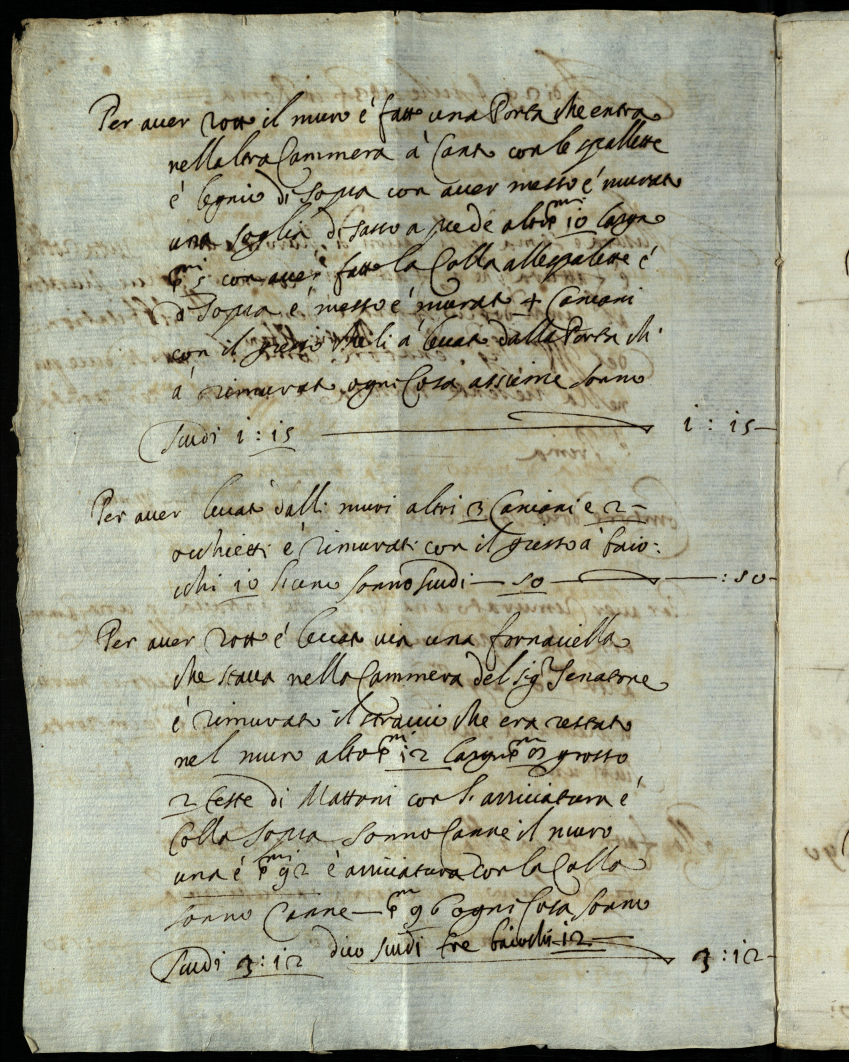 Per auer rotto il muro é fatto una Porta che entra
nella ltra Cammera á Canto con le spallette
é legnio di sopra con auer messo é murato
una soglia di sasso a piede alto p.mi 10 largo
p.mi 5 con auer fatto la Colla alle spalette é
di Sopra é messo é murato 4 Cancani
con il gesso che li á leuato dalla Porta ch'
á rimurato ogni Cosa assieme sonno
scudi 1 : 15 1 : 15
Per auer leuato dalli muri altri 3 Cancani e 2
occhietti é rimurati con il gesso a baio:
chi 10 l'uno sonno scudi 50 : 50
Per auer rotto é leuato via una fornacella
che staua nella Cammera del Sig.r Senatore
é rimurato il straccio che era restato
nel muro alto p.mi 12 largo p.mi grosso
2 teste di Mattoni con l'arricciatura é
Colla sopra sonno Canne il muro
una é p.mi 92 é arricciatura con la Colla
sonno Canne — p.mi 96 ogni Cosa sonno
Scudi 3 : 12 dico scudi tre baiochi 12 3 : 12